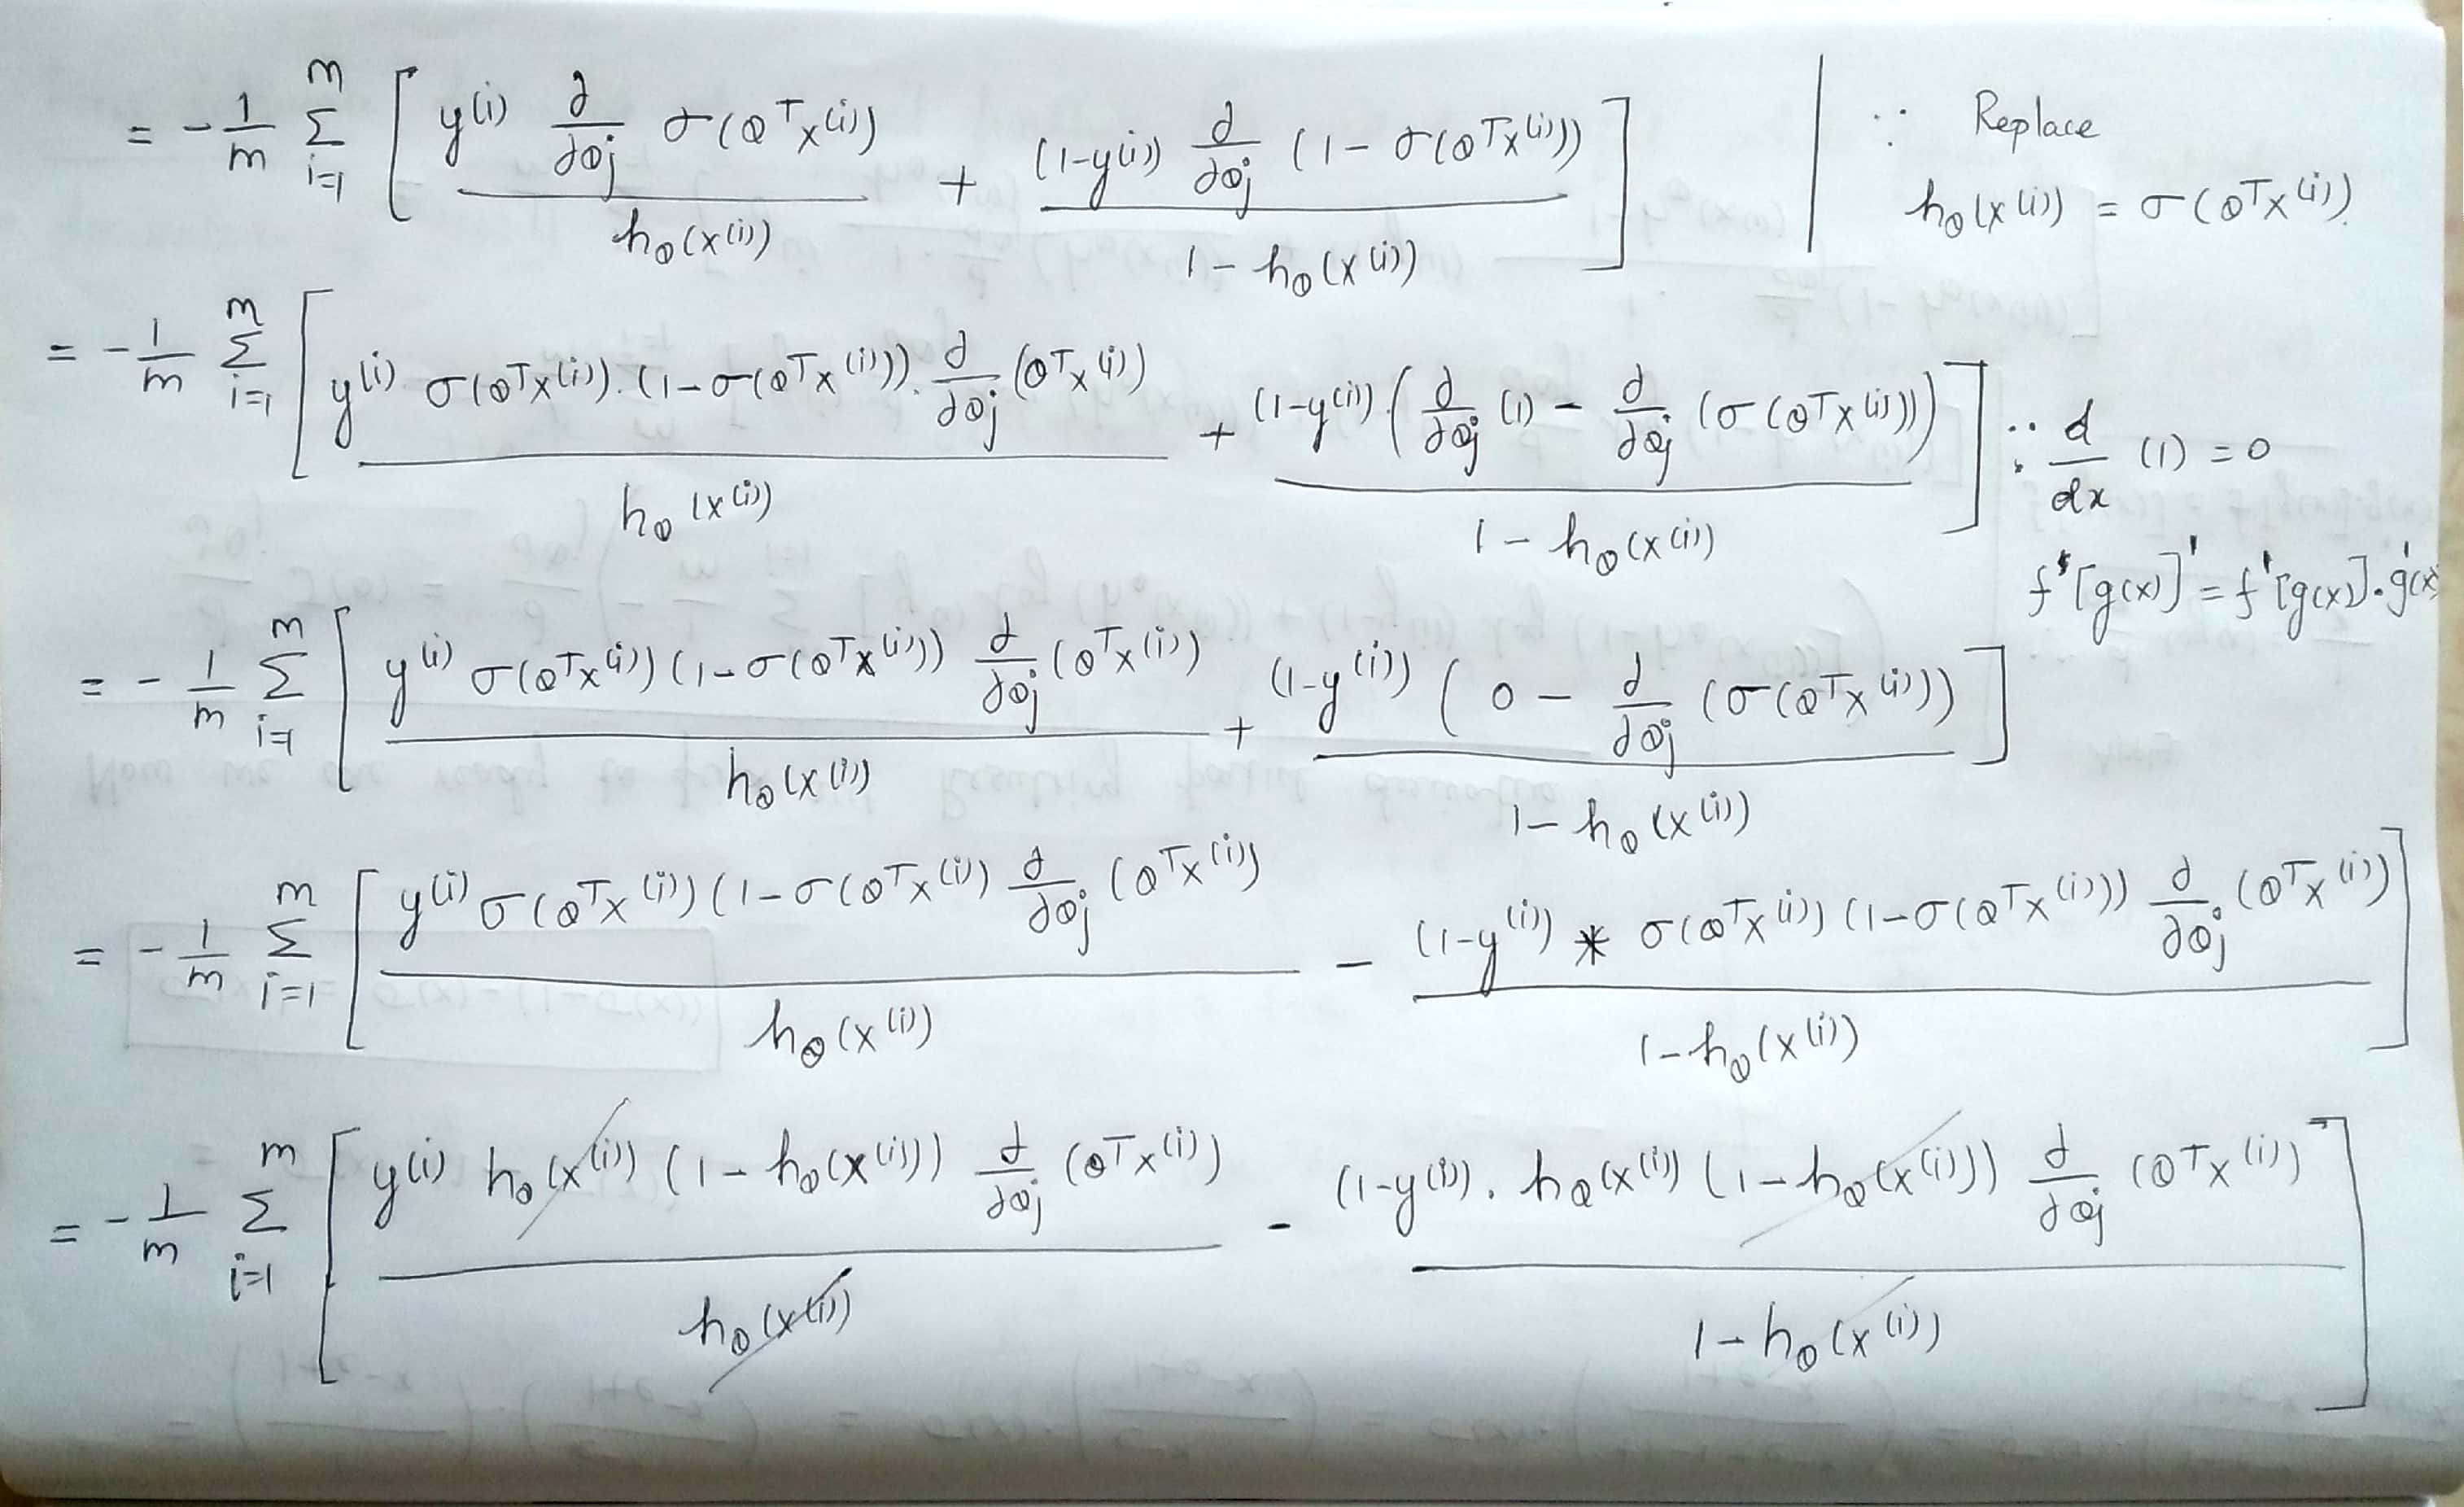 = -1/m Σ_{i=1}^{m} [ y^(i) ∂/∂θj σ(θ^T x^(i)) / hθ(x^(i)) + (1-y^(i)) ∂/∂θj (1 - σ(θ^T x^(i))) / 1 - hθ(x^(i)) ] | ∵ Replace
hθ(x^(i)) = σ(θ^T x^(i)).
= -1/m Σ_{i=1}^{m} [ y^(i) σ(θ^T x^(i)).(1-σ(θ^T x^(i))). ∂/∂θj (θ^T x^(i)) / hθ(x^(i)) + (1-y^(i)) (∂/∂θj (1) - ∂/∂θj (σ(θ^T x^(i)))) / 1 - hθ(x^(i)) ] ∵ d/dx (1) = 0
f[g(x)]' = f'[g(x)].g'(x)
= -1/m Σ_{i=1}^{m} [ y^(i) σ(θ^T x^(i)) (1-σ(θ^T x^(i))) ∂/∂θj (θ^T x^(i)) / hθ(x^(i)) + (1-y^(i)) (0 - ∂/∂θj (σ(θ^T x^(i))) / 1 - hθ(x^(i)) ]
= -1/m Σ_{i=1}^{m} [ y^(i) σ(θ^T x^(i)) (1-σ(θ^T x^(i)) ∂/∂θj (θ^T x^(i)) / hθ(x^(i)) - (1-y^(i)) * σ(θ^T x^(i)) (1-σ(θ^T x^(i))) ∂/∂θj (θ^T x^(i)) / 1-hθ(x^(i)) ]
= -1/m Σ_{i=1}^{m} [ y^(i) hθ(x^(i)) (1 - hθ(x^(i))) ∂/∂θj (θ^T x^(i)) / hθ(x^(i)) - (1-y^(i)). hθ(x^(i)) (1-hθ(x^(i))) ∂/∂θj (θ^T x^(i)) / 1-hθ(x^(i)) ]